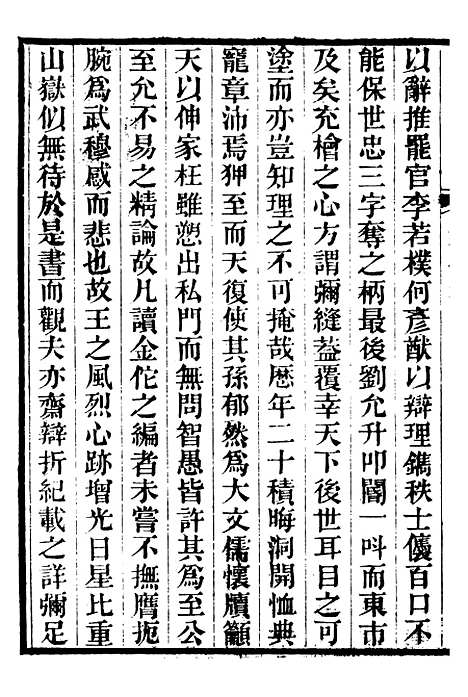 以辭推罷官李若樸何彥猷以辯理鐫秩士㒟百口不
能保世忠三字奪之柄最後劉允升叩閽一呌而東市
及矣充檜之心方謂彌縫蓋覆幸天下後世耳目之可
塗而亦豈知理之不可掩哉歷年二十積晦洞開恤典
寵章沛焉狎至而天復使其孫郁然爲大文儒懷牘籲
天以伸家枉雖愬出私門而無問智愚皆許其爲至公
至允不易之精論故凡讀金佗之編者未嘗不撫膺扼
腕爲武穆感而悲也故王之風烈心跡增光日星比重
山嶽似無待於是書而觀夫亦齋辯折紀載之詳彌足